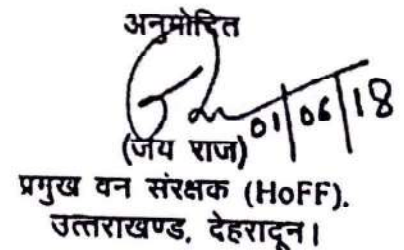 अनुमोदित
01/06/18
(जय राज)
प्रमुख वन संरक्षक (HoFF).
उत्तराखण्ड, देहरादून।